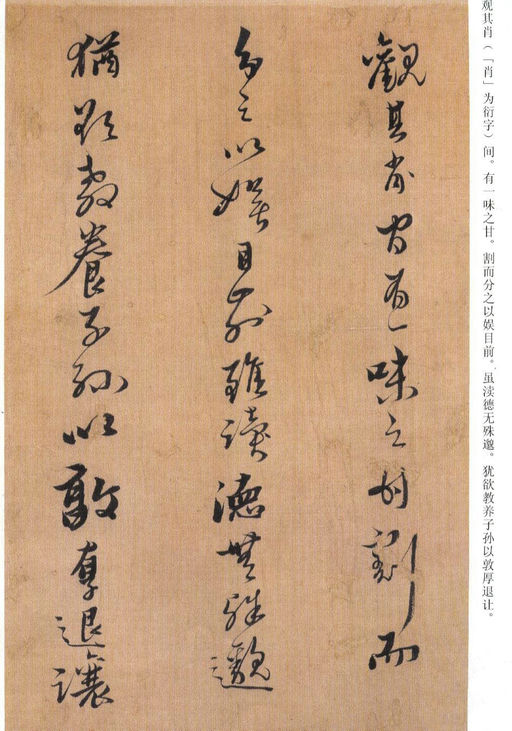 观其肖（「肖」为衍字）间。有一味之甘。割而分之以娱目前。虽渎德无殊邈。犹欲教养子孙以敦厚退让。
觀其肖間有一味之甘割而
分之以娛目前雖讀德無殊邈
猶欲教養子孫以敦厚退讓